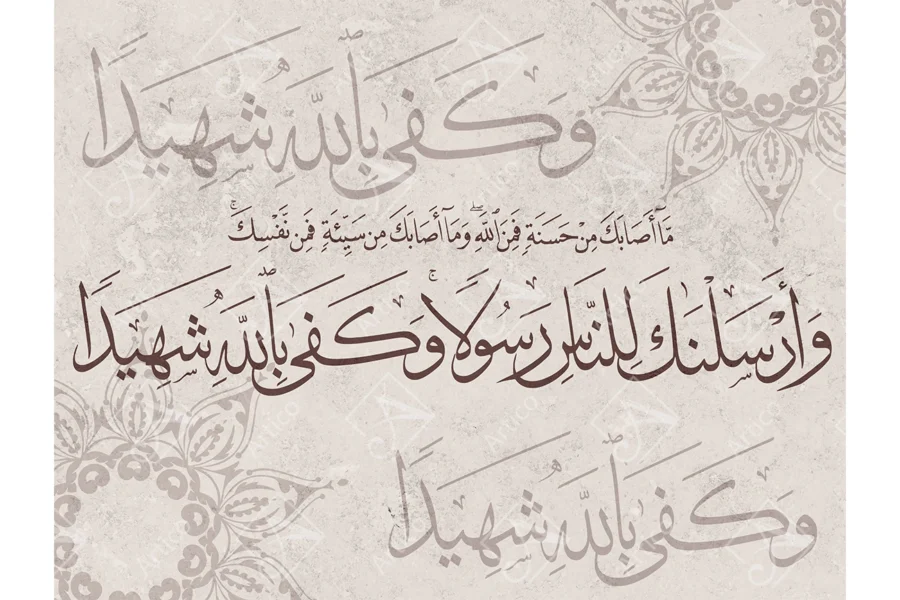 وكفى بالله شهيدا
مَّآ أَصَابَكَ مِنْ حَسَنَةٍ فَمِنَ ٱللَّهِ ۖ وَمَآ أَصَابَكَ مِن سَيِّئَةٍ فَمِن نَّفْسِكَ ۚ
وَأَرْسَلْنَكَ لِلنَّاسِ رَسُولًا ۚ وَكَفَى بِٱللَّهِ شَهِيدًا
وكفى بالله شهيدا
Artico